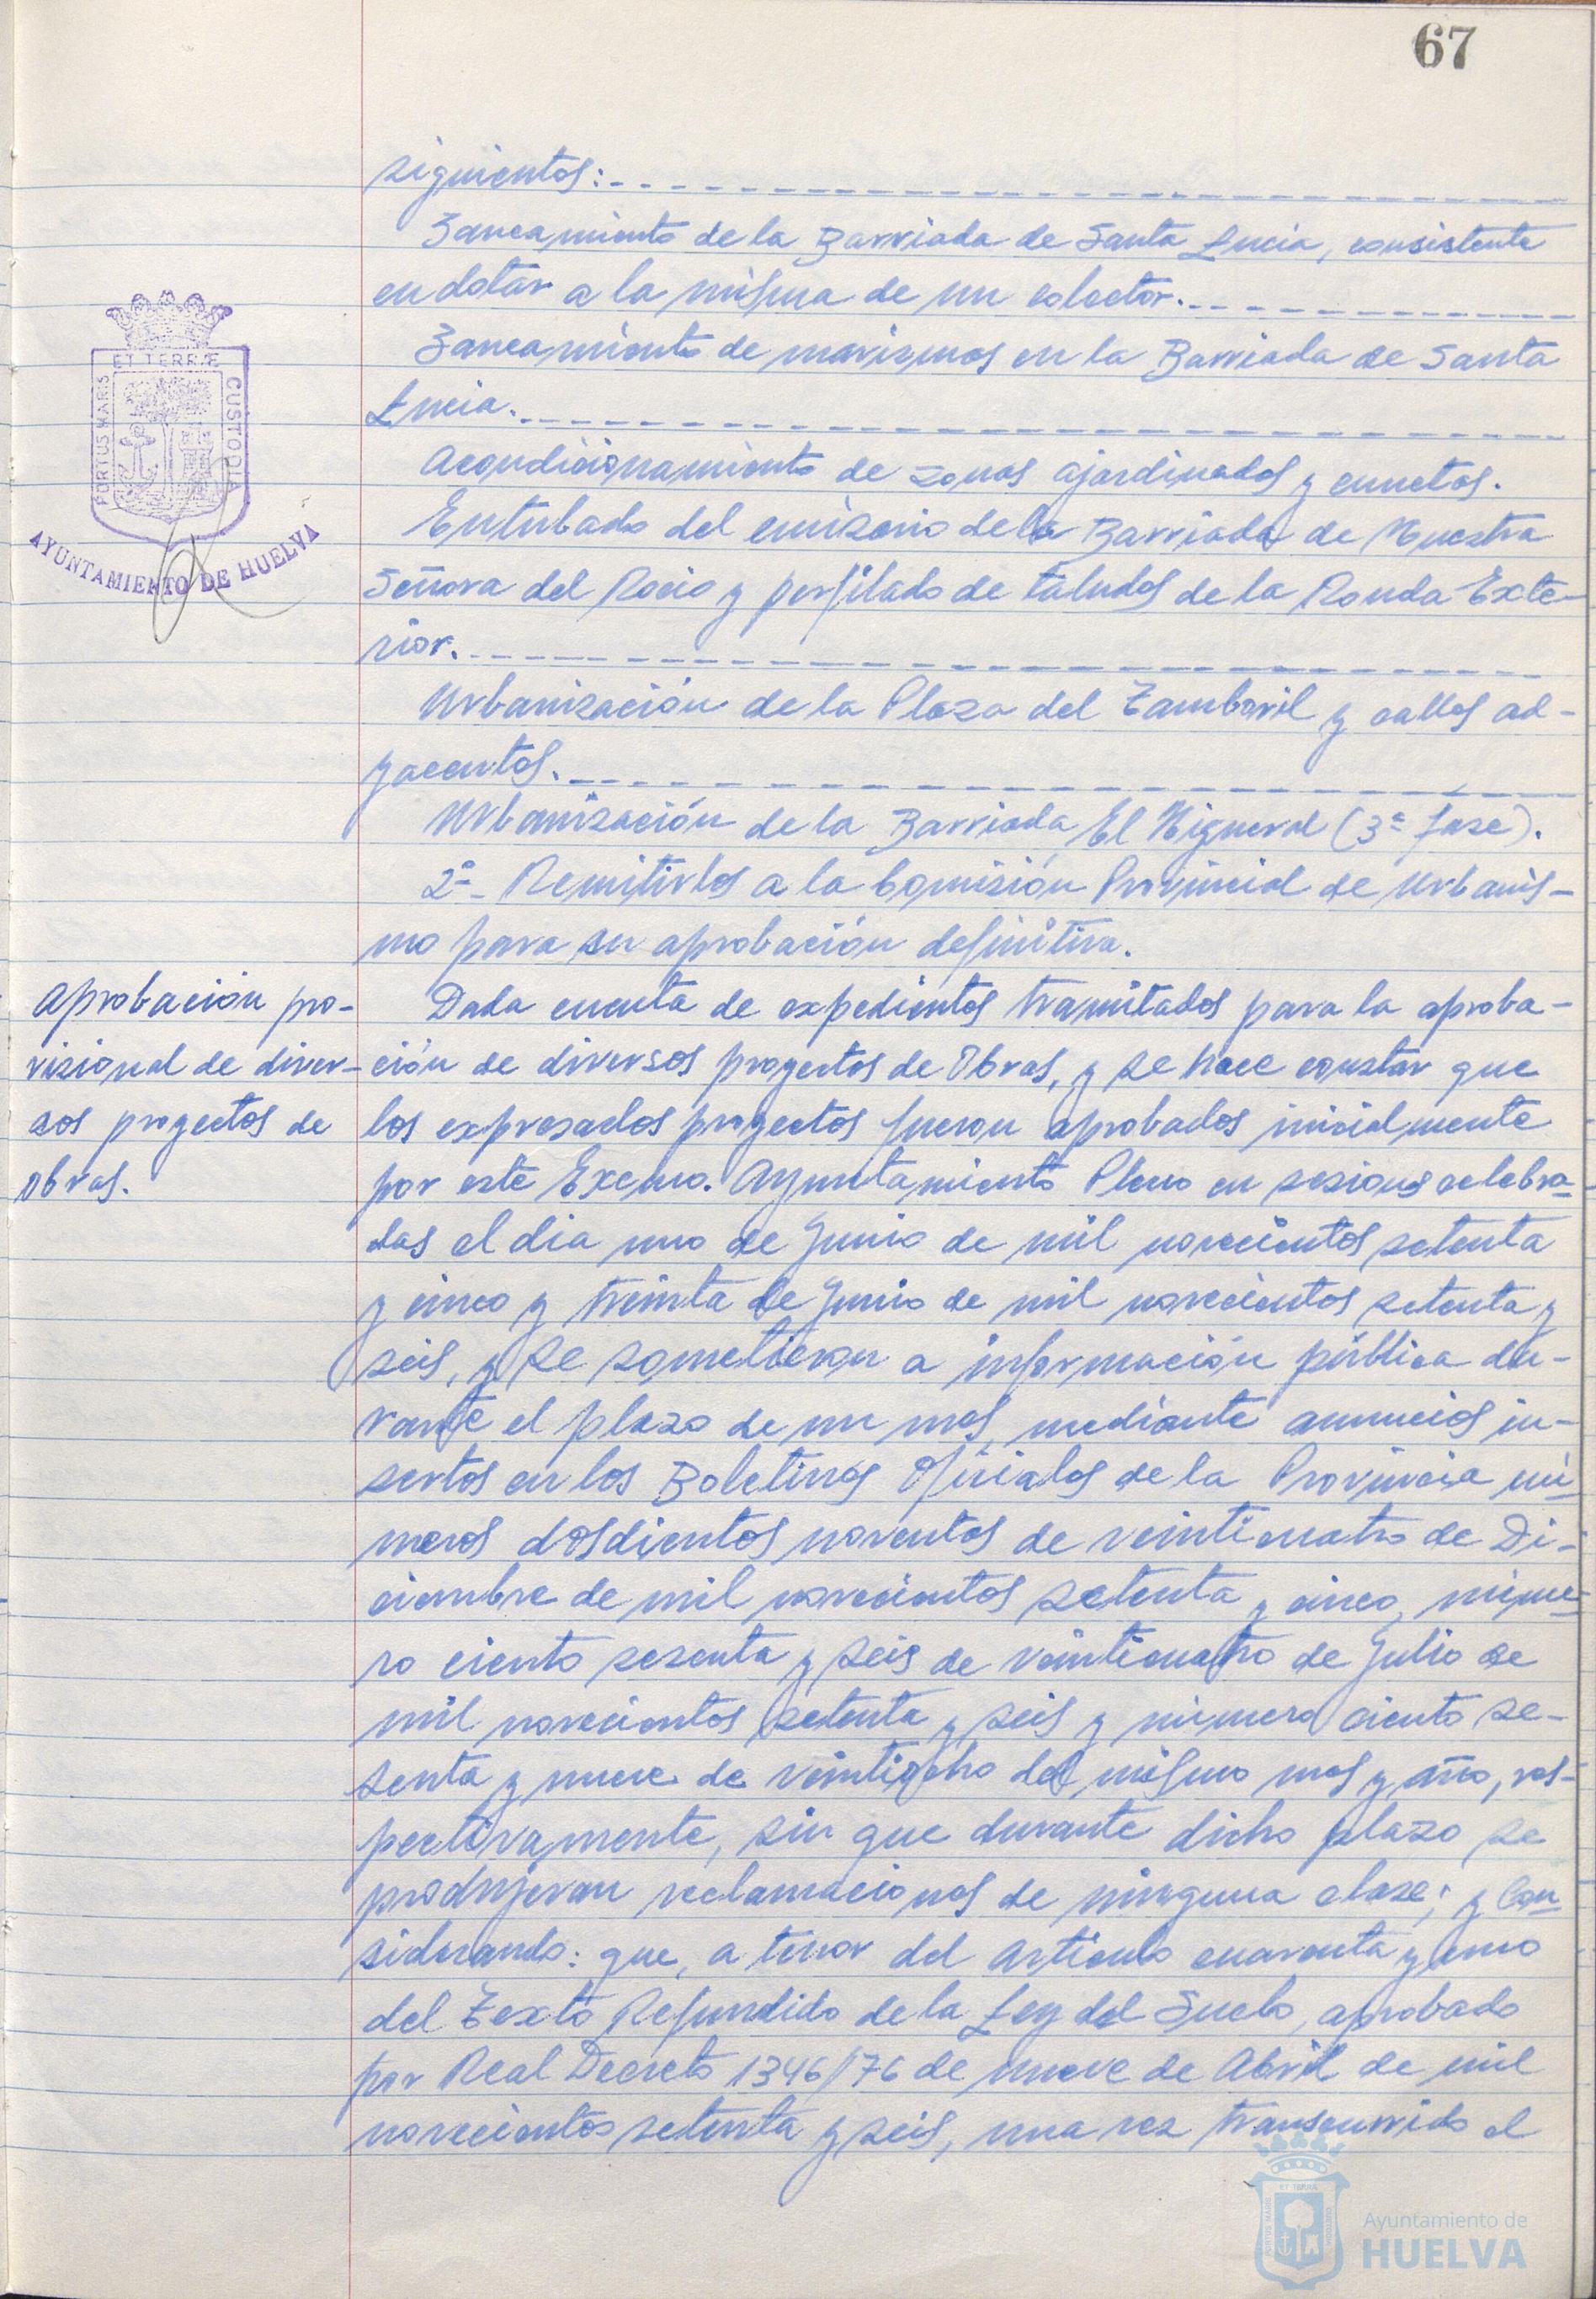 67
siguientes:
Saneamiento de la Barriada de Santa Lucia, consistente
en dotar a la misma de un colector.
Saneamiento de marismas en la Barriada de Santa
Lucia.
Acondicionamiento de zonas ajardinadas y cunetas.
Entubado del emisario de la Barriada de Nuestra
Señora del Rocio y perfilado de taludes de la Ronda Exte-
rior.
Urbanización de la Plaza del Tamboril y calles ad-
yacentes.
Urbanización de la Barriada El Higueral (3ª fase).
2º- Remitirlos a la Comisión Provincial de Urbanis-
mo para su aprobación definitiva.
Aprobación pro-
visional de diver-
sos proyectos de
obras.
Dada cuenta de expedientes tramitados para la aproba-
ción de diversos proyectos de Obras, y se hace constar que
los expresados proyectos fueron aprobados inicialmente
por este Excmo. Ayuntamiento Pleno en sesiones celebra-
das el dia uno de Junio de mil novecientos setenta
y cinco y treinta de Junio de mil novecientos setenta y
seis, y se sometieron a información pública du-
rante el plazo de un mes, mediante anuncios in-
sertos en los Boletines Oficiales de la Provincia nú-
meros dosdientos noventos de veinticuatro de Di-
ciembre de mil novecientos setenta y cinco, núme-
ro ciento sesenta y seis de veinticuatro de Julio de
mil novecientos setenta y seis y número ciento se-
senta y nueve de veintiocho del mismo mes y año, res-
pectivamente, sin que durante dicho plazo se
produjeran reclamaciones de ninguna clase; y Con-
siderando: que, a tenor del Articulo cuarenta y uno
del Texto Refundido de la Ley del Suelo, aprobado
por Real Decreto 1346/76 de nueve de Abril de mil
novecientos setenta y seis, una vez transcurrido el
PORTUS MARIS ET TERRÆ CUSTODIA
AYUNTAMIENTO DE HUELVA
Ayuntamiento de
HUELVA